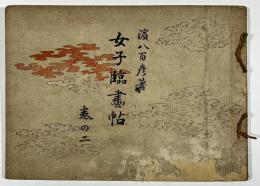 濱八百彦著
女子臨畫帖
巻の二